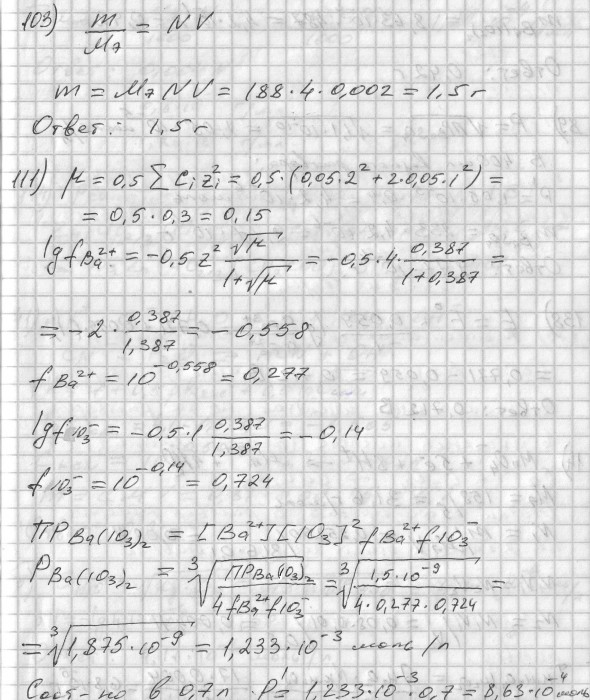 103) m/Mэ = NV
m = Mэ NV = 188·4·0,002 = 1,5 г
Ответ: 1,5 г
111) μ = 0,5 Σ Cᵢ zᵢ² = 0,5·(0,05·2² + 2·0,05·1²) =
= 0,5·0,3 = 0,15
lg f Ba²⁺ = -0,5 z² √μ/(1+√μ) = -0,5·4·0,387/(1+0,387) =
= -2·0,387/1,387 = -0,558
f Ba²⁺ = 10^-0,558 = 0,277
lg f IO₃⁻ = -0,5·1 0,387/1,387 = -0,14
f IO₃⁻ = 10^-0,14 = 0,724
ПР Ba(IO₃)₂ = [Ba²⁺][IO₃⁻]² f Ba²⁺ f IO₃⁻
P Ba(IO₃)₂ = ∛(ПР Ba(IO₃)₂/(4 f Ba²⁺ f IO₃⁻)) = ∛(1,5·10⁻⁹/(4·0,277·0,724)) =
= ∛(1,875·10⁻⁹) = 1,233·10⁻³ моль/л
Соот-но в 0,7 л P' = 1,233·10⁻³·0,7 = 8,63·10⁻⁴ моль